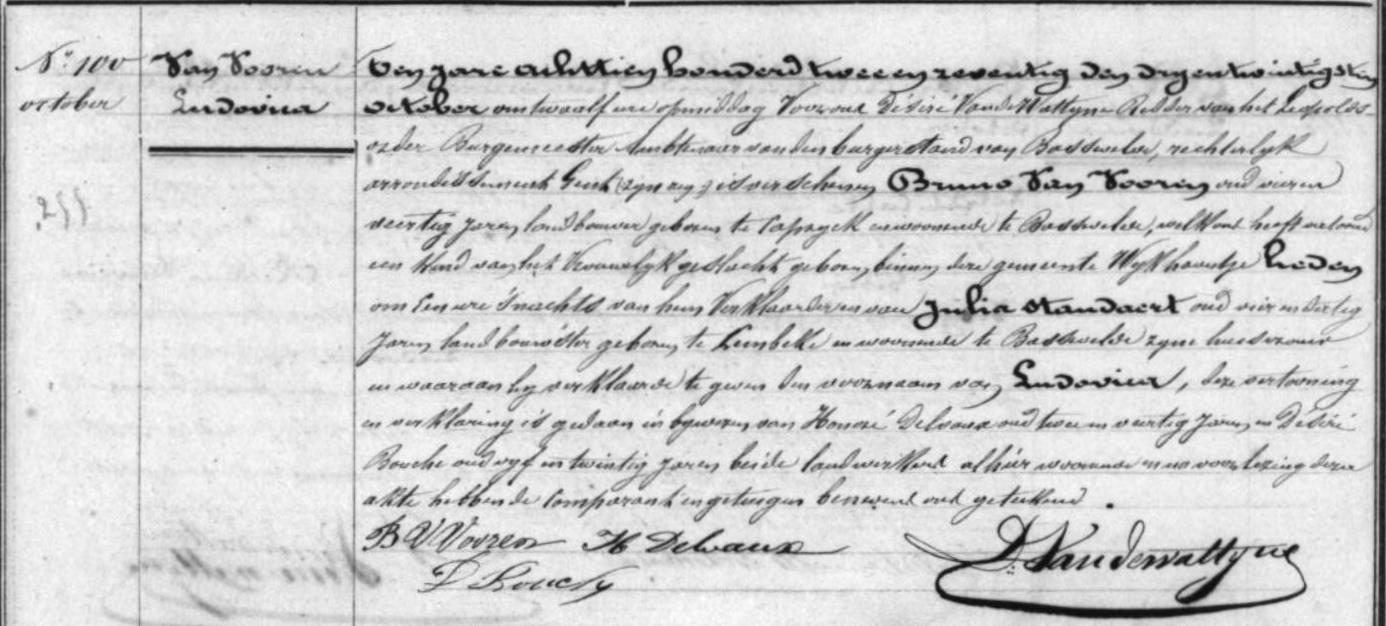 N.º 100
october
Van Vooren
Ludovica
Ten jare achttien honderd twee en zeventig den dryentwintigsten
october om twaalf ure op middag Voor ons Désiré Van de Wattyne Ridder van het Leopolds-
order Burgemeester Ambtenaar van den burgerstand van Bassevelde, rechterlyk
arrondissement Gent (zyn ) is verschenen Bruno Van Vooren oud vier en
veertig jaren landbouwer geboren te Capryck en woonende te Bassevelde, welk ons heeft vertoond
een Kind van het Vrouwelyk geslacht geboren binnen deze gemeente Wyk heden
om een ure s'nachts van hem Verklaarder en van Julia Standaert oud vier en dertig
Jaren landbouwster geboren te Lembeke en woonende te Bassevelde zyne huisvrouw
en waaraan hy verklaarde te geven den voornaam van Ludovica, deze vertooning
en verklaring is gedaan in bywezen van Honoré Delvaux oud twee en veertig Jaren, en Désiré
Bouche oud vyf en twintig jaren beide landwerkers alhier woonende en na voorlezing dezer
akte hebben de Comparant en getuigen benevens ons geteekend.
B V Vooren H Delvaux
D Vandewattyne